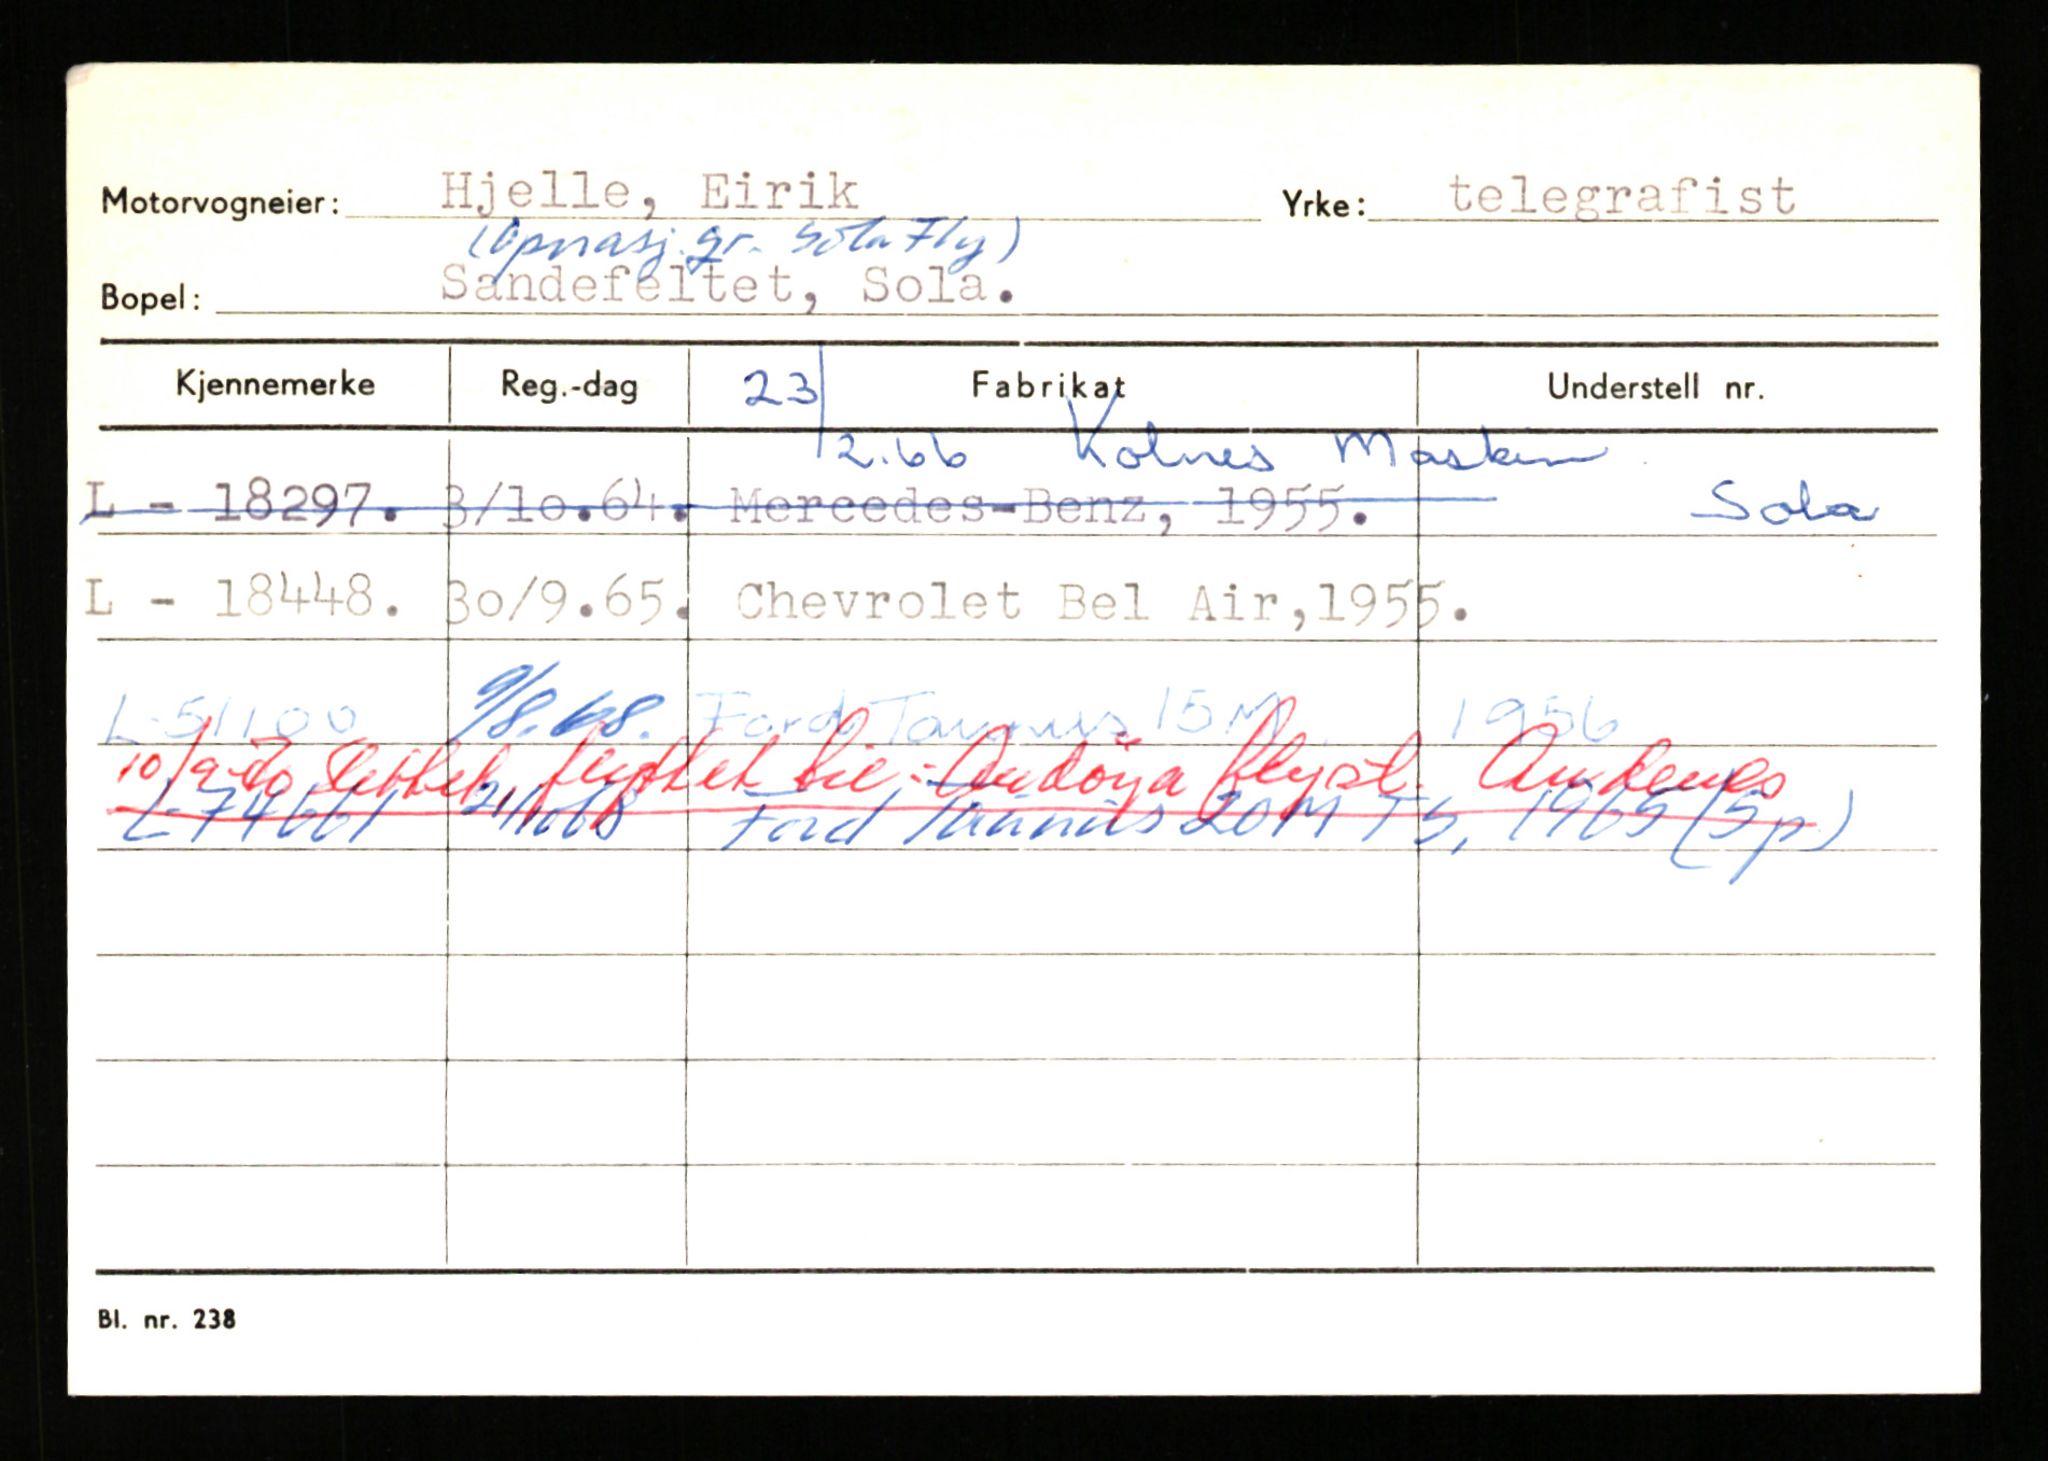 Motorvogneier: Hjelle, Eirik Yrke: telegrafist
(Oprasj. gr. Sola Fly)
Bopel: Sandefeltet, Sola.
Kjennemerke Reg.-dag Fabrikat Understell nr.
23/2.66 Kolnes Maskin Sola
L - 18297. 3/10.64. Mercedes-Benz, 1955.
L - 18448. 30/9.65. Chevrolet Bel Air,1955.
L-51100 9/8.68. Ford Taunus 15M, 1956
10/9-70 slettet, flyttet til: Andöya flyst. Andenes
L-74661 21/10 68 Ford Taunus 20M TS, 1965 (5p)
Bl. nr. 238